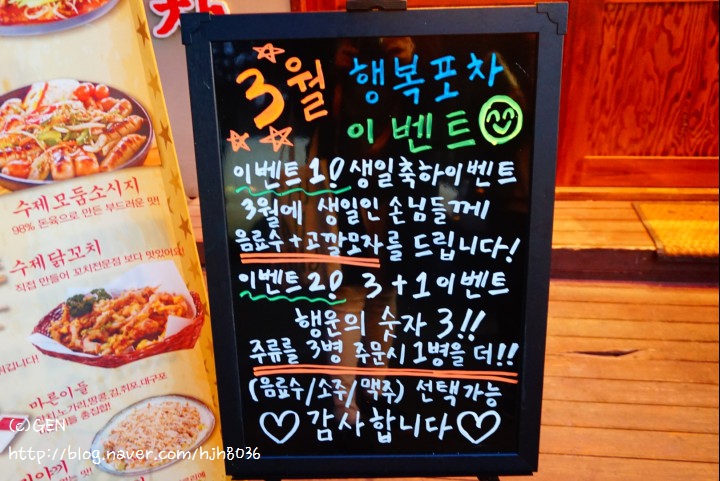 3월 행복포차
이벤트
이벤트 1! 생일축하이벤트
3월에 생일인 손님들께
음료수+고깔모자를 드립니다!
이벤트 2! 3+1이벤트
행운의 숫자 3!!
주류를 3병 주문시 1병을 더!!
(음료수/소주/맥주) 선택가능
♡감사합니다♡
수제 모둠소시지
98% 돈육으로 만든 부드러운 맛!
수제닭꼬치
직접 만들어 꼬치전문점 보다 맛있어요!
마른이들
(c)GEN
http://blog.naver.com/hjh8036